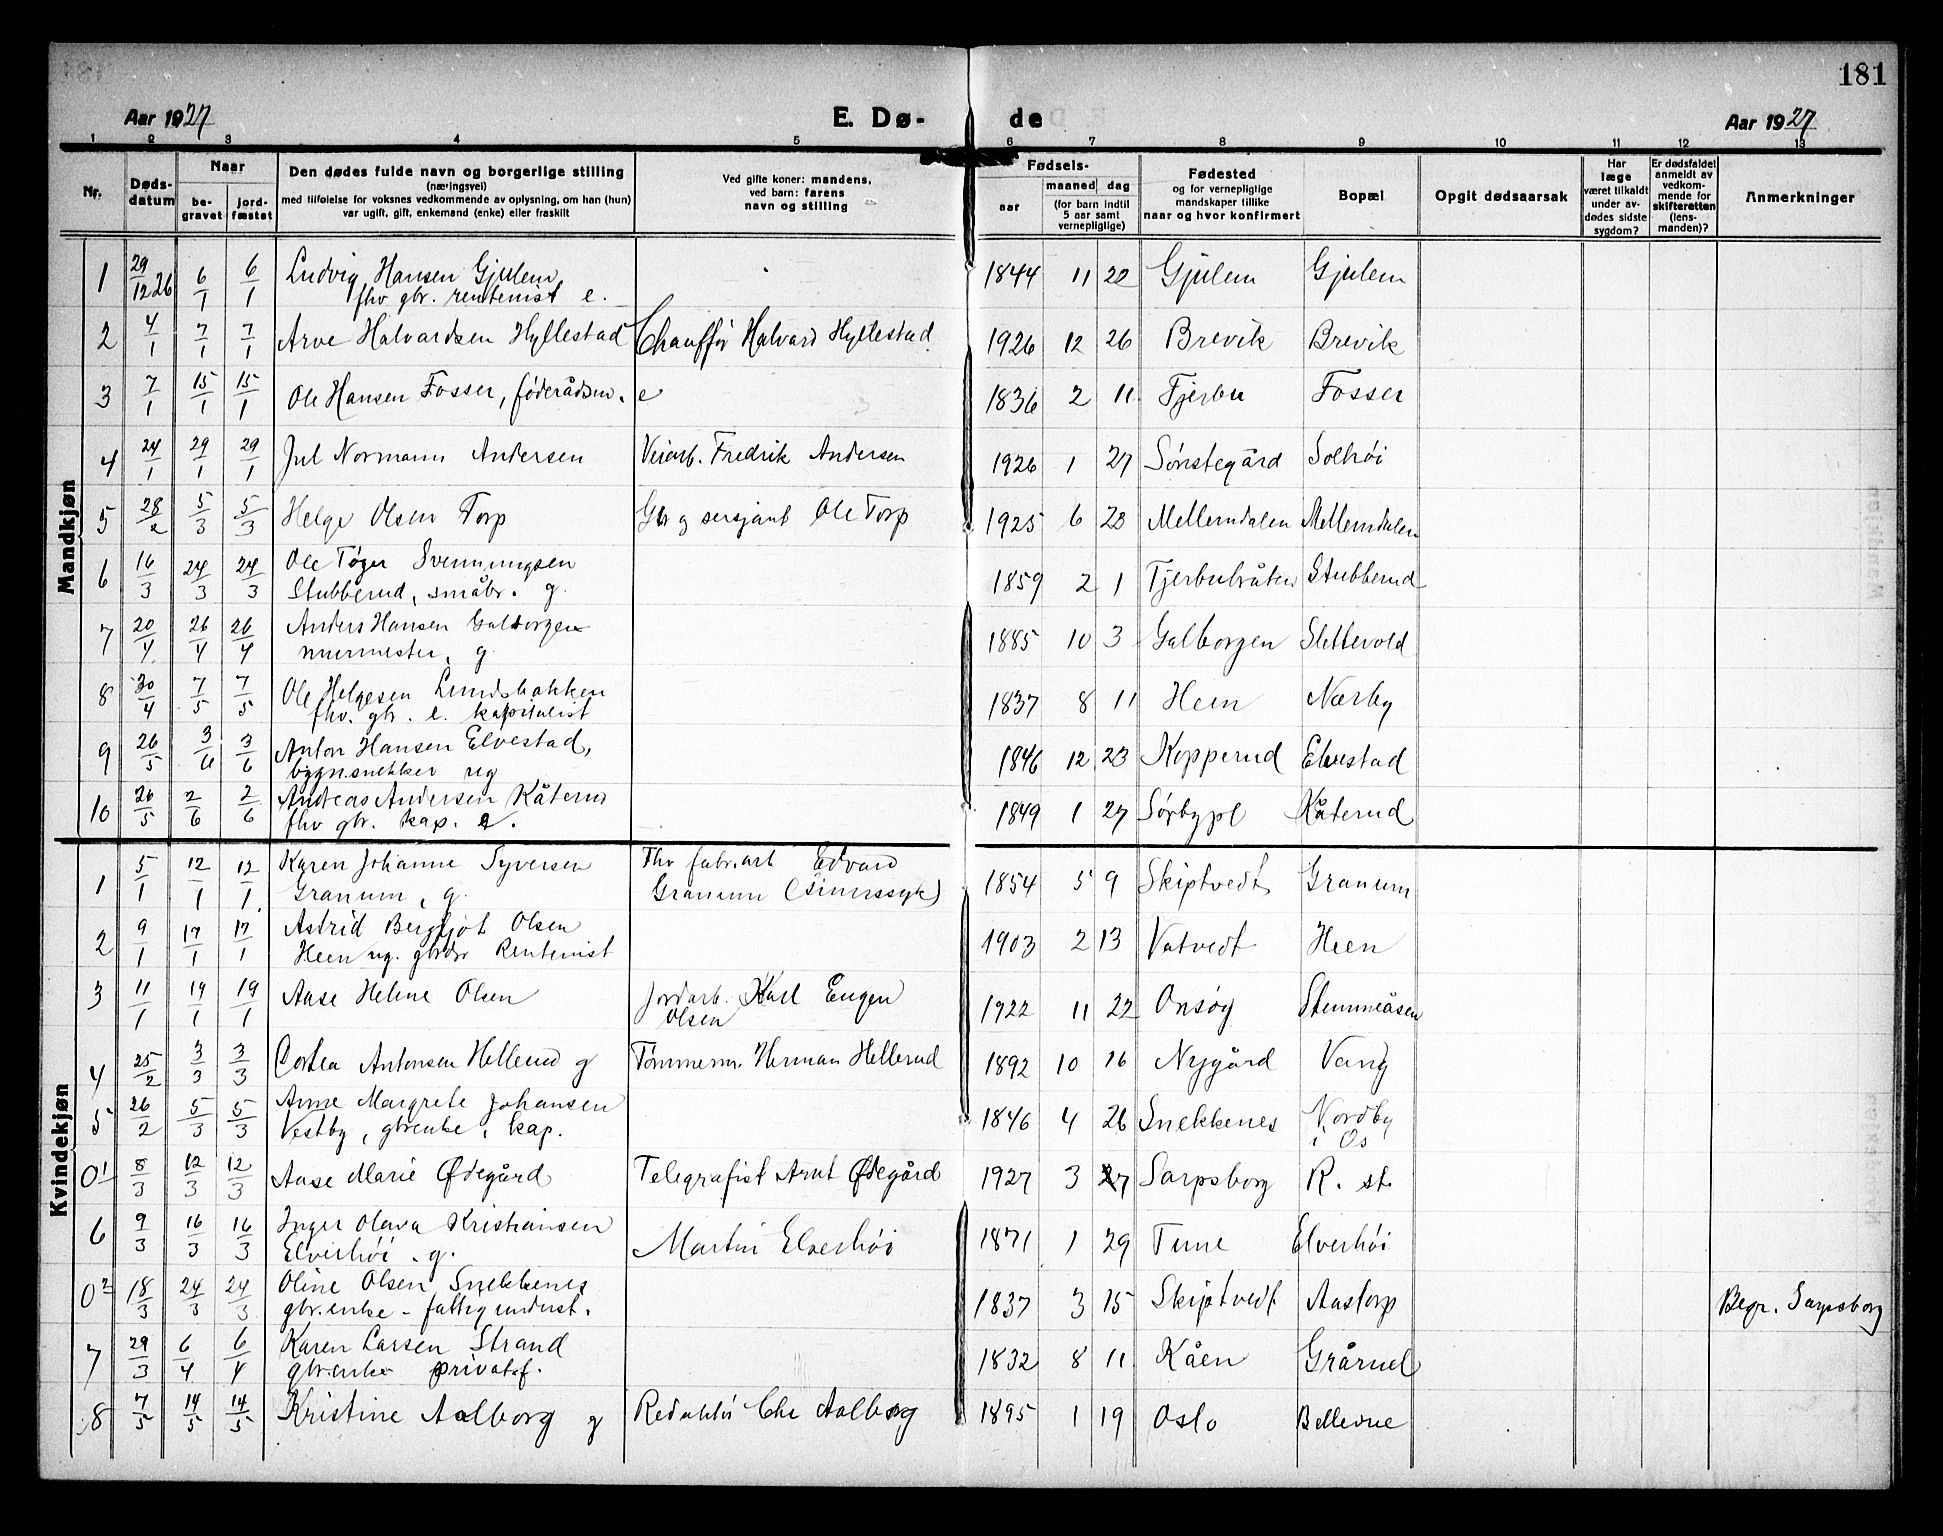 181
Aar 1927 E. Dø- de Aar 1927
1 2 3 4 5 6 7 8 9 10 11 12 13
Nr.
Døds-
datum
Naar
be-
gravet
jord-
fæstet
Den dødes fulde navn og borgerlige stilling
(næringsvei)
med tilføielse for voksnes vedkommende av oplysning, om han (hun)
var ugift, gift, enkemand (enke) eller fraskilt
Ved gifte koner: mandens,
ved barn: farens
navn og stilling
Fødsels-
aar
maaned dag
(for barn indtil
5 aar samt
vernepligtige)
Fødested
og for vernepligtige
mandskaper tillike
naar og hvor konfirmert
Bopæl
Opgit dødsaarsak
Har
læge
været tilkaldt
under av-
dødes sidste
sygdom?
Er dødsfaldet
anmeldt av
vedkom-
mende for
skifteretten
(lens-
manden)?
Anmerkninger
Mandkjøn
1 29/12 26 6/1 6/1 Ludvig Hansen Gjulem 1844 11 20 Gjulem Gjulem
fhv gbr. rentenist e.
2 4/1 7/1 7/1 Arve Halvardsen Hyllestad Chauffør Halvard Hyllestad 1926 12 26 Brevik Brevik
3 7/1 15/1 15/1 Ole Hansen Fosser, føderådsm. e 1836 2 11 Tjerbu Fosser
4 24/1 29/1 29/1 Jul Normann Andersen Veiarb. Fredrik Andersen 1926 1 27 Sønstegård Solhøi
5 28/2 5/3 5/3 Helge Olsen Torp Gbr og sersjant Ole Torp 1925 6 23 Mellemdalen Mellemdalen
6 16/3 24/3 24/3 Ole Tøger Svenningsen 1859 2 1 Tjerbubråten Stubberud
Stubberud, småbr. g.
7 20/4 26/4 26/4 Anders Hansen Galborgen 1885 10 3 Galborgen Slettevold
murmester, g
8 30/4 7/5 7/5 Ole Helgesen Lundsbakken 1837 8 11 Hem Nærby
fhv. gbr. e. kapitalist
9 26/5 3/6 3/6 Anton Hansen Elvestad, 1846 12 23 Kopperud Elvestad
bygn.snekker ug
10 26/5 2/6 2/6 Andreas Andersen Kåterud 1849 1 27 Sørby pl Kåterud
fhv gbr. kap. e.
Kvindekjøn
1 5/1 12/1 12/1 Karen Johanne Syversen Fhv fabr.arb Edvard 1854 5 9 Skiptvedt Granum
Granum, g. Granum (sinnssyk)
2 9/1 17/1 17/1 Astrid Bergljot Olsen 1903 2 13 Vatvedt Heen
Heen ug. gbrdr Rentenist
3 11/1 19/1 19/1 Aase Helene Olsen Jordarb. Karl Eugen 1922 11 22 Onsøy Stemmeåsen
Olsen
4 25/2 3/3 3/3 Antonsen Hellerud g Tømmerm. Herman Hellerud 1892 10 16 Nygård Vang
5 26/2 5/3 5/3 Anne Margrete Johansen 1846 4 26 Snekkenes Nordby
Vestby, gbrenke, kap. i Os
0¹ 8/3 12/3 12/3 Aase Marie Ødegård Telegrafist Arnt Ødegård 1927 3 7 Sarpsborg R. st.
6 9/3 16/3 16/3 Inger Olava Kristiansen Martin Elverhøi 1871 1 29 Tune Elverhøi
Elverhøi. g.
0² 18/3 24/3 24/3 Oline Olsen Snekkenes 1837 3 15 Skiptvedt Aastorp Begr. Sarpsborg
gbr.enke - fattigunderst.
7 29/3 6/4 6/4 Karen Larsen Strand 1832 8 11 Kåen Gråruel
gbrenke privatf.
8 7/5 14/5 14/5 Kristine Aalborg g Redaktør Chr Aalborg 1895 1 19 Oslo Bellevue